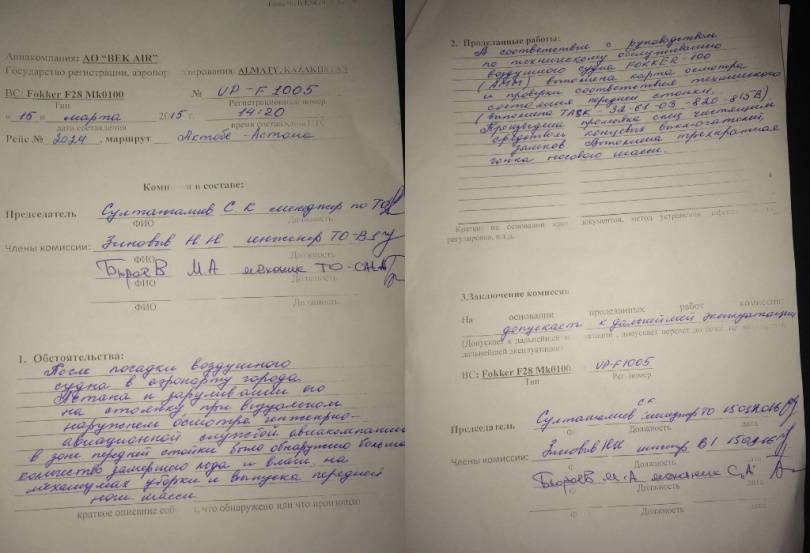 Авиакомпания: АО "BEK AIR"
Государство регистрации, аэропорт базирования: ALMATY, KAZAKHSTAN
ВС: Fokker F28 Mk0100 № UP-F1005
Тип Регистрационный номер
« 15 » марта 2015 г. 14:20
дата составления время составления UTC
Рейс № 2024, маршрут Актобе-Астана
Комиссия в составе:
Председатель Султангалиев С К менеджер по ТО
ФИО Должность
Члены комиссии: Зиновьв Н Н инженер ТО-В1
ФИО Должность
М.А механик ТО-CAT A
ФИО Должность
ФИО Должность
1. Обстоятельства:
После посадки воздушного
судна в аэропорту города
Астана и заруливании его
на стоянку при визуальном
наружнем осмотре инженерно-
авиационной службой авиакомпании
в зоне передней стойки было обнаружено большое
количество замершого льда и влаги, на
механизмах уборки и выпуска передней
ноги шасси
краткое описание события, что обнаружено или что произошло
2. Проделанные работы:
В соответствие с руководством
по техническому обслуживанию
воздушного судна FOKKER-100
(AMM) выполнена карта осмотра
и проверки соответствия технического
состояния передней стойки.
(выполнена TASK 32-61-03-820-815B)
Произведена промывка спец чистящим
средством концевых выключателей,
замков. Выполнена трехкратная
гонка носового шасси.
регулировка, и.т.д.
3.Заключение комиссии:
На основании проделанных работ комиссия:
допускает к дальнейшей эксплуатации
(Допускает к дальнейшей эксплуатации, допускает перелет до базы, не допускает к
дальнейшей эксплуатации)
ВС: Fokker F28 Mk0100 UP-F1005
Тип Рег. номер
СК
Председатель Султангалиев менеджер ТО
Должность дата
Члены комиссии: Зиновьв НН инженер В1
Должность дата
М.А механик
Должность дата
Должность дата